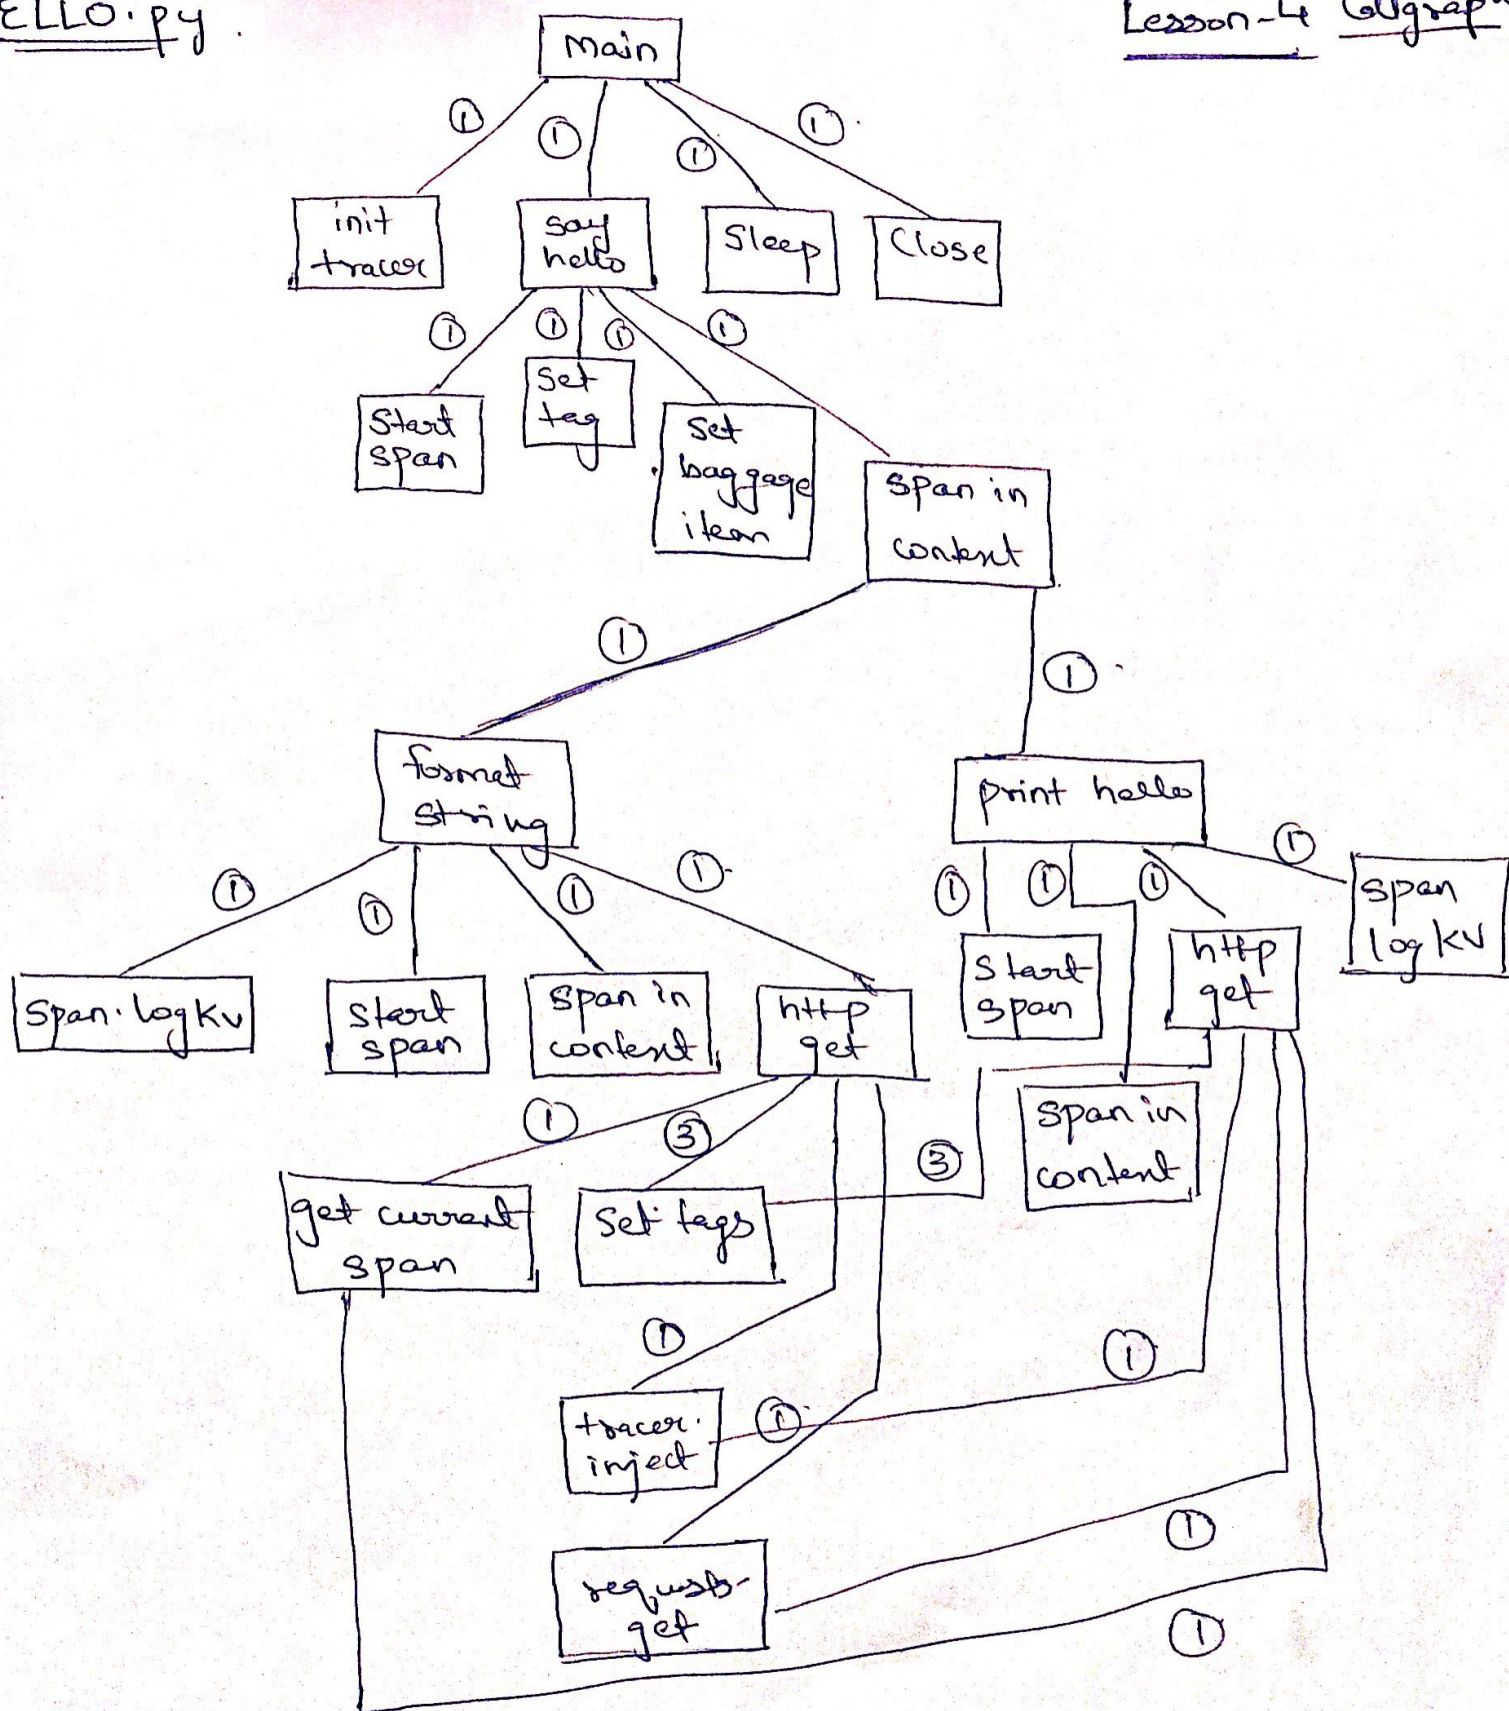 ELLO.py.
Lesson-4 Callgrap
main
①
①
①
①
init
tracer
say
hello
Sleep
Close
①
①
①
①
Start
span
Set
tag
Set
baggage
item
span in
context
①
①
format
string
print hello
①
①
①
①
①
①
①
①
span
log KV
Span.logKv
start
span
span in
context
http
get
Start
span
http
get
①
③
③
span in
context
get current
span
Set tags
①
①
①
tracer.
inject
①
requests-
get
①